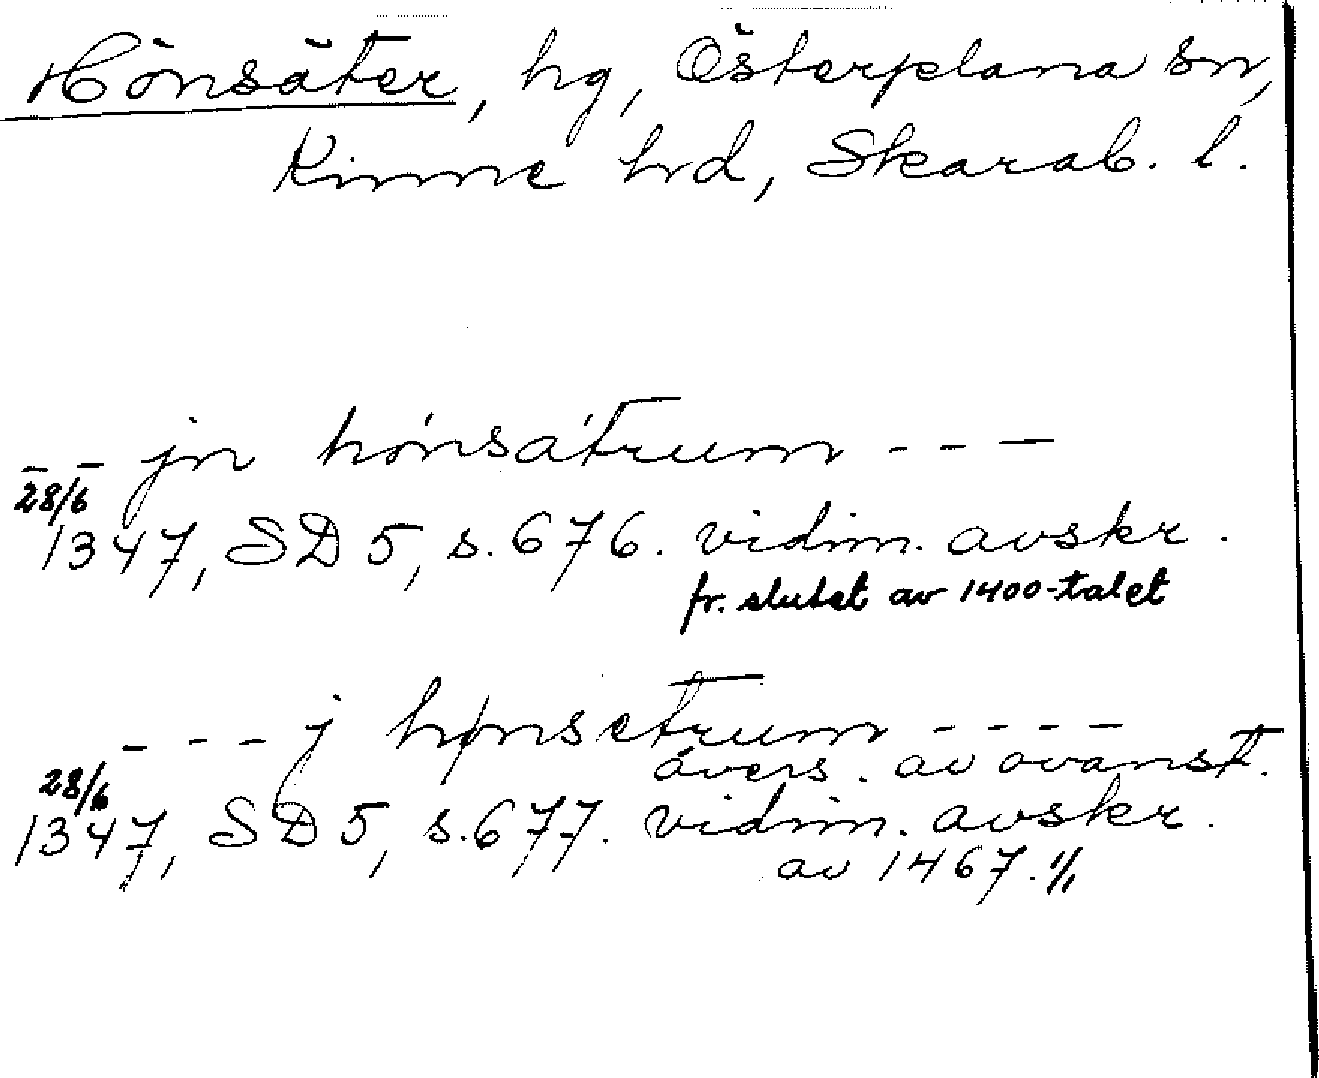 Hönsäter, hg, Österplana sn,
Kinne hrd, Skarab. l.
-- jn hónsátrum ---
28/6
1347, SD 5, s. 676. vidim. avskr.
fr. slutet av 1400-talet
---- j hønsetrum ----
övers. av ovanst.
28/6
1347, SD 5, s. 677. vidim. avskr.
av 1467. 1/1